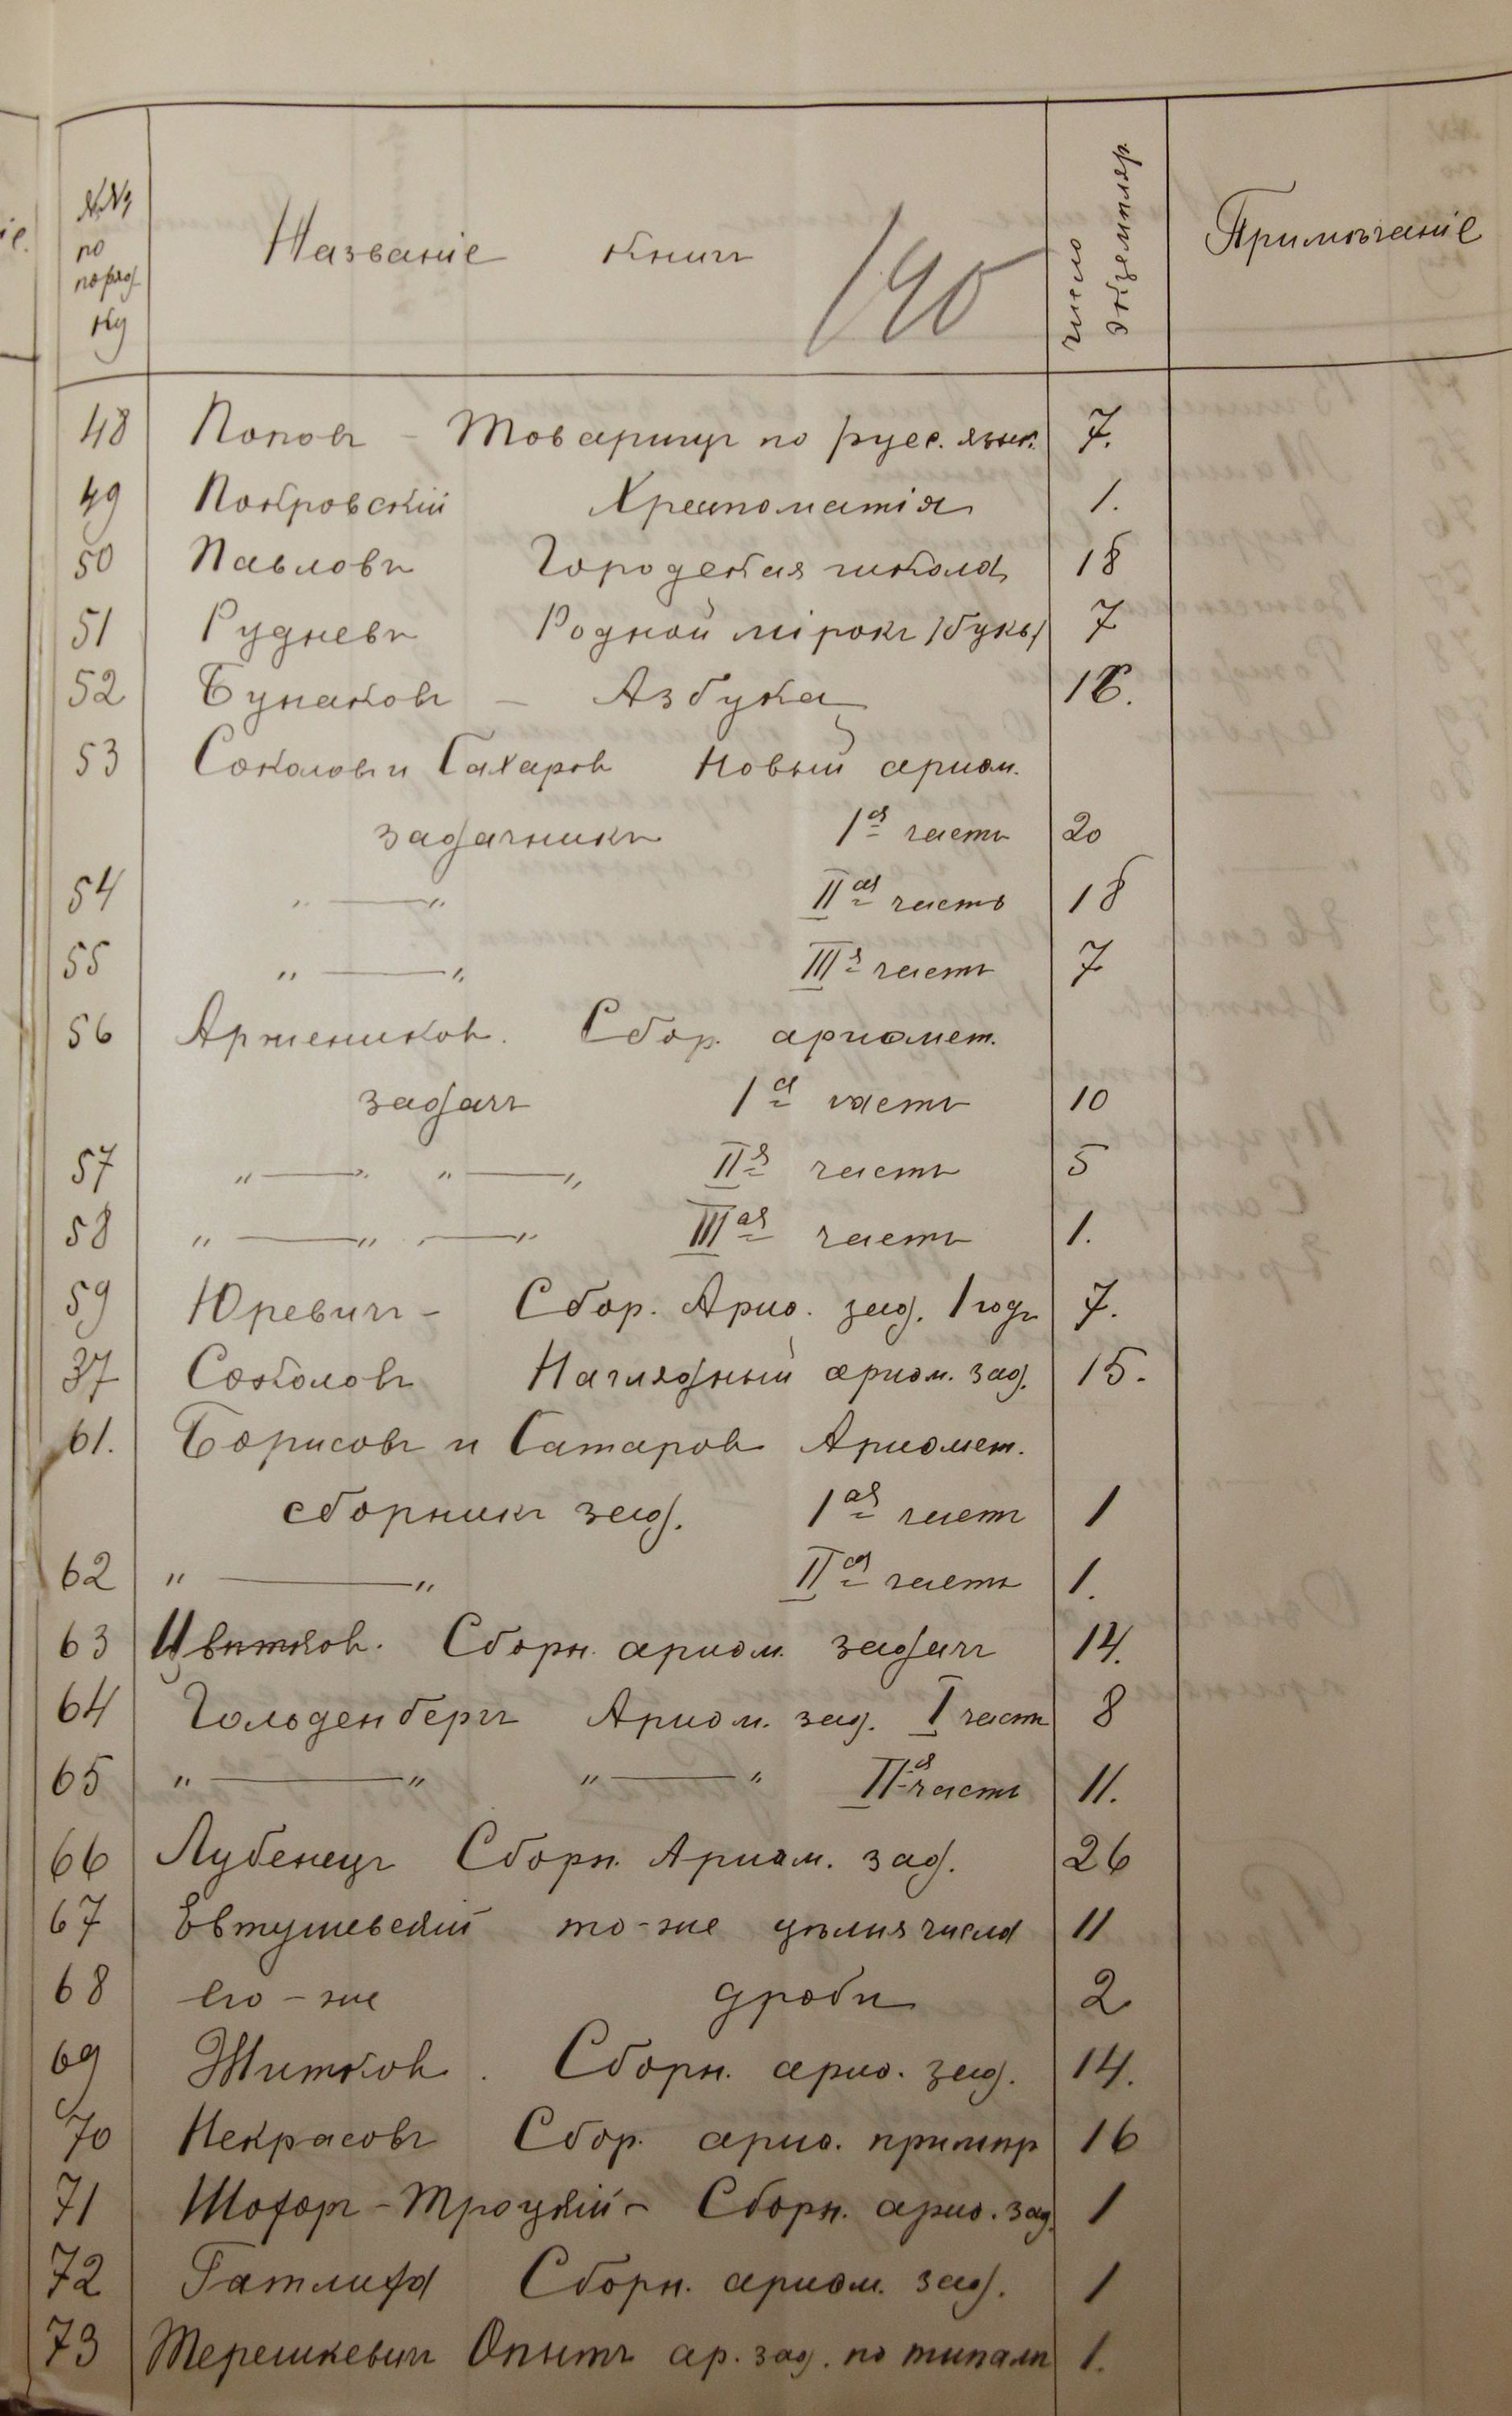 №№ по поряд ку
Названіе книгъ
140
число экземпляр
Примѣчаніе
48 Поповъ – Товарищъ по рус. язык. 7.
49 Покровскій Хрестоматія 1.
50 Павловъ Городская школа 18
51 Рудневъ Родной мірокъ /букв/ 7
52 Бунаковъ – Азбука 16.
53 Соколовъ и Сахаровъ Новый ариѳм.
задачникъ 1ая часть 20
54 " — " IIая часть 18
55 " — " IIIя часть 7
56 Аржениковъ. Сбор. ариѳмет.
задачъ 1я часть 10
57 " — " " — " IIя часть 5
58 " — " " — " IIIая часть 1.
59 Юревичъ – Сбор. Ариѳ. зад. 1 годъ 7.
37 Соколовъ Наглядный ариѳм. зад. 15.
61. Борисовъ и Сатаровъ Ариѳмет.
сборникъ зад. 1ая часть 1
62 " — " IIая часть 1.
63 Цвѣтковъ. Сборн. ариѳм. задачъ 14.
64 Гольденбергъ Ариѳм. зад. I часть 8
65 " — " " — " IIя часть 11.
66 Лубенецъ Сборн. Ариѳм. зад. 26
67 Евтушевскій то-же цѣлыя числа 11
68 его-же дроби 2
69 Житковъ. Сборн. ариѳ. зад. 14.
70 Некрасовъ Сбор. ариѳ. примѣр 16
71 Шохоръ-Троцкій – Сборн. ариѳ. зад. 1
72 Гатлиха Сборн. ариѳм. зад. 1
73 Терешкевичъ Опытъ ар. зад. по типамъ 1.